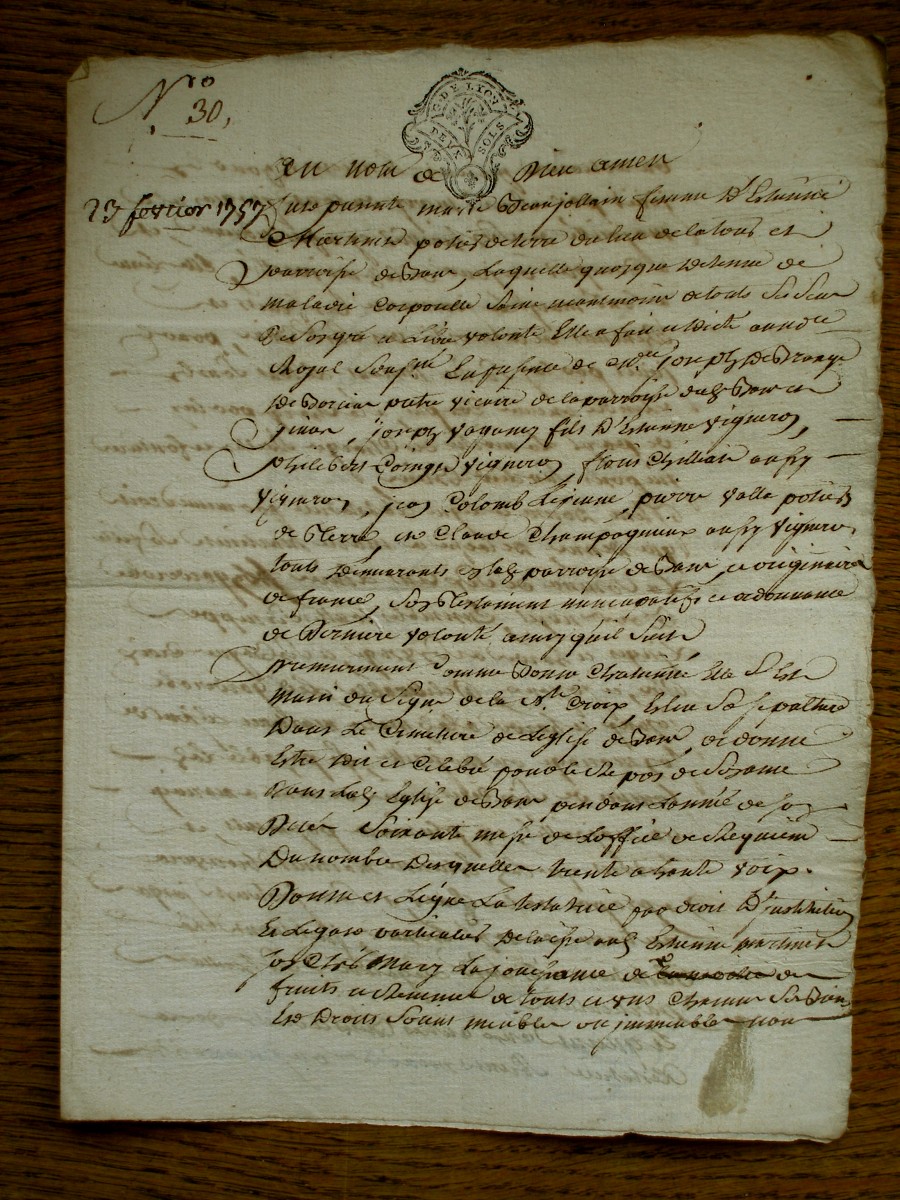 No 30,
G. DE LYON
DEUX SOLS
Au nom de Dieu amen
23 fevrier 1757
fut presente marie Beaujollain femme d'Estienne
Martinat potier de terre du lieu de la tour et
parroisse de laquelle quoyque detenue de
maladie corporelle saine neantmoins de touts ses sens
de son gré et libre volonté Elle a fait et dicté au nore
Royal soussné En presence de Mre joseph
pretre vicaire de la parroisse dudt
joseph fils d'Estienne vigneron,
philibert vigneron, aussy
vigneron, jean Colomb Lejeune, pierre valla potier
de terre, et Claude Champagnieux aussy vigneron
touts demeurants en lad parroisse de et originaires
de france, son testament nuncupatif et ordonnance
de derniere volonté ainsy qu'il suit
premierement comme bonne chretienne Elle s'est
munie du signe de la Ste Croix, Eslu sa sepulture
dans Le Cimetiere de l'Eglise de et donne
Estre dit et celebré pour le repos de son ame
dans lad Eglise de pendant L'année de son
deces soixante messe de L'office de Requiem
du nombre desquelles trente a haute voix.
Donne et Legue La testatrice par droit d'institution
et Legats particulier delaisse aud Estienne martinat
son cher Mary La jouissance de des
fruits et Revenus de touts et uns chacuns ses biens
et Droits soient meubles ou immeubles non